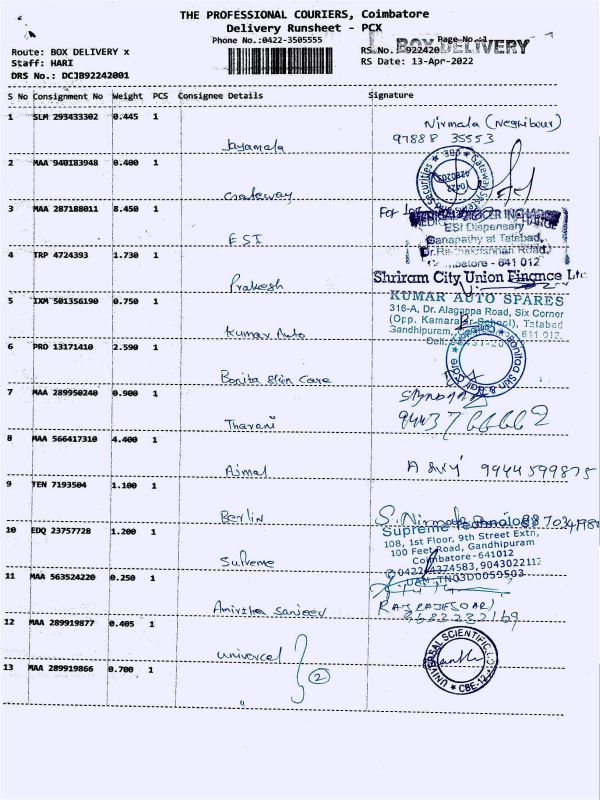 THE PROFESSIONAL COURIERS, Coimbatore
Delivery Runsheet - PCX
Phone No.:0422-3505555
Page No.:1
BOX DELIVERY
Route: BOX DELIVERY x
RS No. 922420
Staff: HARI
RS Date: 13-Apr-2022
DRS No.: DCJB92242001
S No Consignment No Weight PCS Consignee Details Signature
1 SLM 293433302 0.445 1
Nirmala (Neghibour)
97888 35553
Jayamala
2 MAA 940183948 0.400 1
Gateway
3 MAA 287188011 8.450 1
For
ESI Dispensary
Ganapathy at Tatabad,
ESI
4 TRP 4724393 1.730 1
- 641 012
Shriram City Union Finance Ltd
Prakesh
5 IXM 501356190 0.750 1
KUMAR AUTO SPARES
316-A, Dr. Alagappa Road, Six Corner
(Opp. Kamarajar School), Tatabad
Gandhipuram, 611 012.
Kumar Auto
6 PRO 13171410 2.590 1
Bonita Skin Care
7 MAA 289950240 0.900 1
Tharani
8 MAA 566417310 4.400 1
Ajmal
9944599875
9 TEN 7193504 1.100 1
Berlin
S. Nirmala
10 EDQ 23757728 1.200 1
Supreme Technology
108, 1st Floor, 9th Street Extn,
100 Feet Road, Gandhipuram
Coimbatore-641012
0422-4374583, 9043022112
Supreme
11 MAA 563524220 0.250 1
Amirtha Sanjeev
12 MAA 289919877 0.405 1
UNIVERSAL SCIENTIFIC
CBE-12
univercel
2
13 MAA 289919866 0.700 1
"